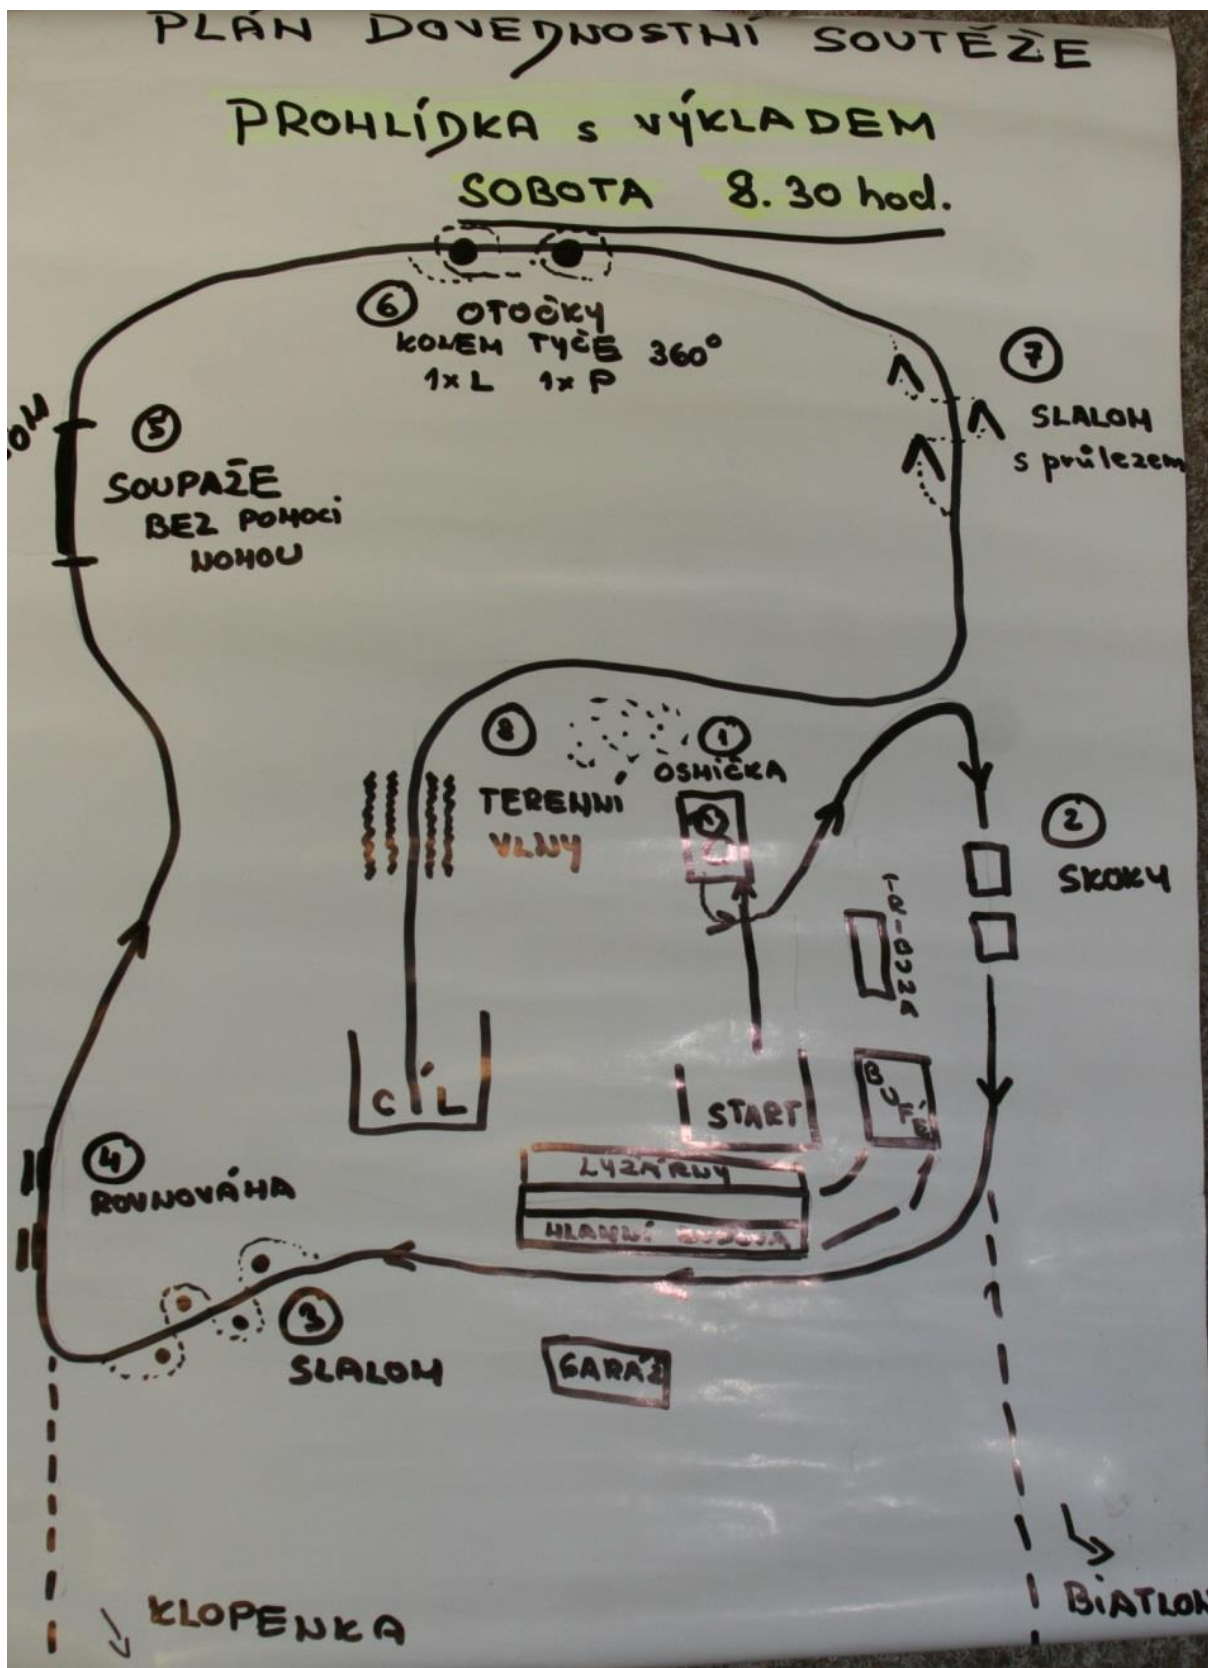 PLÁN DOVEDNOSTNÍ SOUTĚŽE
PROHLÍDKA s VÝKLADEM
SOBOTA 8.30 hod.
6
OTOČKY
KOLEM TYČE 360°
1x L 1x P
7
SLALOM
s průlezem
5
SOUPAŽE
BEZ POMOCI
NOHOU
8
TERENNÍ
VLNY
1
OSMIČKA
2
SKOKY
TRIBUNA
BUFÉ
CÍL
START
LYŽÁRNY
HLAVNÍ BUDOVA
4
ROVNOVÁHA
3
SLALOM
GARÁŽ
KLOPENKA
BIATLON